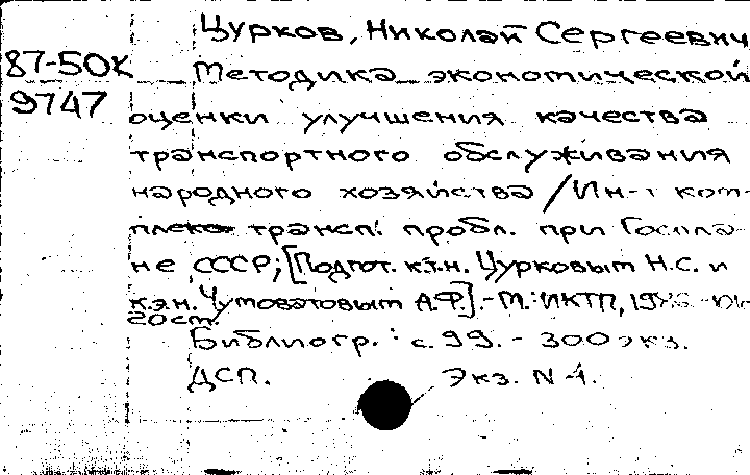 Цурков, Николай Сергеевич
87-50К
Методика экономической
9747
оценки улучшения качества
транспортного обслуживания
народного хозяйства / Ин-т ком-
плекс трансп. пробл. при Госпла-
не СССР; [Подгот. к.э.н. Цурковым Н.С. и
к.э.н. А.Ф.]. - М.: ИКТП,
20 ст.
Библиогр.: с. 99. - 300 экз.
ДСП. Экз. N 4.